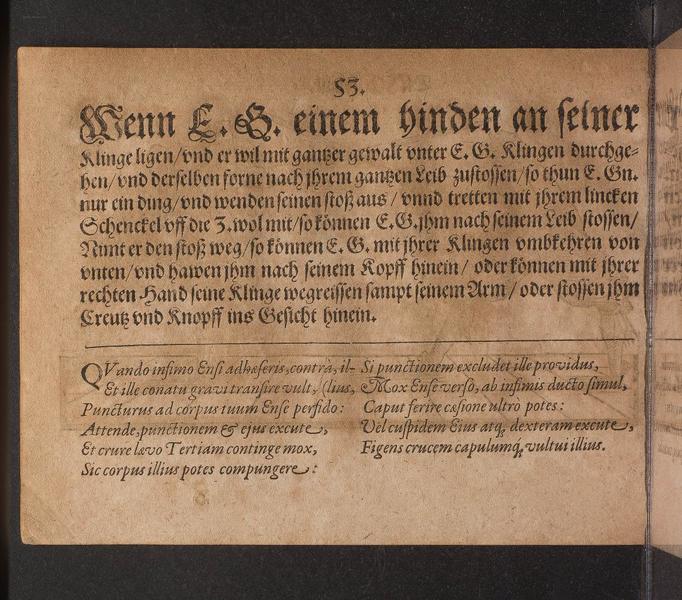 53.
Wenn E. G. einem hinden an seiner
Klinge ligen/vnd er wil mit gantzer gewalt vnter E. G. Klingen durchge-
hen/vnd derselben forne nach jhrem gantzen Leib zustossen/so thun E. Gn.
nur ein ding/vnd wenden seinen stoß aus/vnnd tretten mit jhrem lincken
Schenckel vff die 3. wol mit/so können E. G. jhm nach seinem Leib stossen/
Nimt er den stoß weg/so können E. G. mit jhrer Klingen vmbkehren von
vnten/vnd hawen jhm nach seinem Kopff hinein/oder können mit jhrer
rechten Hand seine Klinge wegreissen sampt seinem Arm/oder stossen jhm
Creutz vnd Knopff ins Gesicht hinein.
QVando infimo Ensi adhæseris, contrà, il-
Et ille conatu gravi transire vult, (lius,
Puncturus ad corpus tuum Ense perfido:
Attende, punctionem & ejus excute,
Et crure lævo Tertiam continge mox,
Sic corpus illius potes compungere:
Si punctionem excludet ille providus,
Mox Ense verso, ab infimis ducto simul,
Caput ferire cæsione ultro potes:
Vel cuspidem Eius atq; dexteram excute,
Figens crucem capulumq; vultui illius.